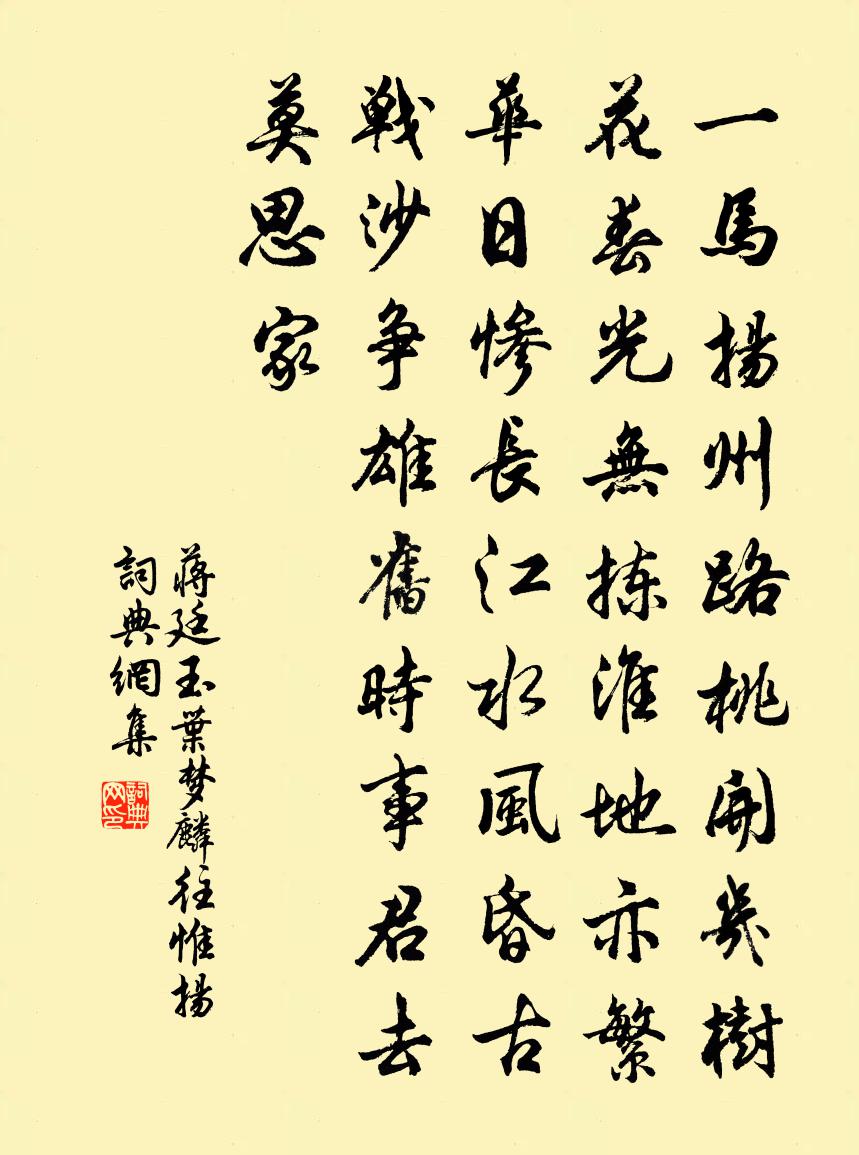 一馬揚州路桃開幾樹
花春光無揀淮地亦繁
華日慘長江水風昏古
戰沙争雄舊時事君去
莫思家
蔣廷玉葉梦麟往惟揚
詞典網集
詞典网印